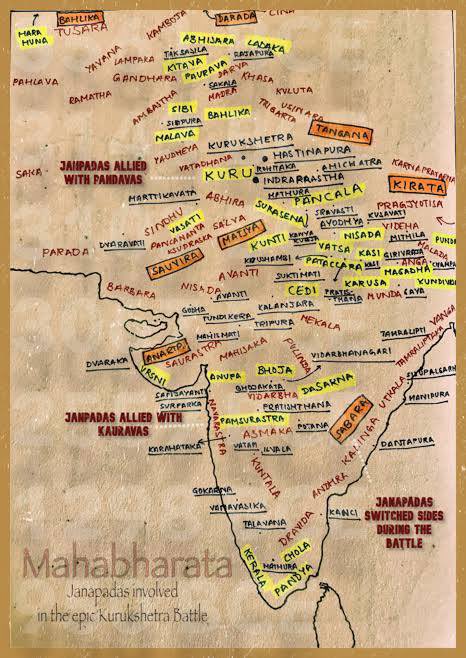 BAHLIKA
DARADA
CINA
HARA
HUNA
TUSARA
KAMBOJA
ABHISARA
LADAKA
YAVANA
TAKSASILA
RAJAPURA
LAMPAKA
KITAVA
DARVA
PAURAVA
GANDHARA
KHASA
PAHLAVA
SAKALA
MADRA
RAMATHA
KULUTA
AMBASTHA
USINARA
SIBI
BAHLIKA
TRIGARTA
SIBIPURA
MALAVA
TANGANA
KURUKSHETRA
YAUDHEYA
HASTINAPURA
JANPADAS ALLIED
WITH PANDAVAS
VATADHANA
ROHITAKA
AHICHATRA
SAKA
KURU
INDRAPRASTHA
KIRATA
MATHURA
MARTTIKAVATA
ABHIRA
PANCALA
PRAGJYOTISA
SINDHU
SURASENA
SRAVASTI
KULAVATI
VASATI
SALVA
AYODHYA
VIDEHA
PANCHANADA
MATSYA
KUNTI
KANYA
KUBJA
NISADA
MITHILA
PUNDR
DVARAVATI
KSUDRAKA
VATSA
KASI
GIRIVRAJA
MALADA
PARADA
SAUVIRA
KAUSHAMBI
PATACCARA
KASI
ANGA
CHAMPA
AVANTI
SUKTIMATI
MAGADHA
BARBARA
NISADA
CEDI
KARUSA
KUNDIVISA
PRATIS-
THANA
MUNDA
GAYA
AVANTI
KALANJARA
GODHA
TUNDIKERA
MEKALA
VANGA
TRIPURA
MAHISMATI
TAMRALIPTI
ANARTA
SAURASTRA
MAHISAKA
PULINDA
VIDARBHANAGARI
TAMRALIPTAKA
DVARAKA
VRSNI
ANUPA
BHOJA
BHOJAKATA
DASARNA
SISUPALGARH
VIDARBHA
UTKALA
MANIPURA
SURPARKA
PRATISHTHANA
JANPADAS ALLIED
WITH
KAURAVAS
NAVARASTRA
PAMSURASTRA
SABARA
ASMAKA
POTANA
KALINGA
KARAHATAKA
VATAPI
ILVALA
DANTAPURA
KUNTALA
GOKARNA
ANDHRA
VANAVASIKA
KANCI
JANAPADAS
SWITCHED SIDES
DURING THE
BATTLE
TALAVANA
DRAVIDA
Mahabharata
CHOLA
KERALA
MATHURA
PANDYA
Janapadas involved
in the epic Kurukshetra Battle